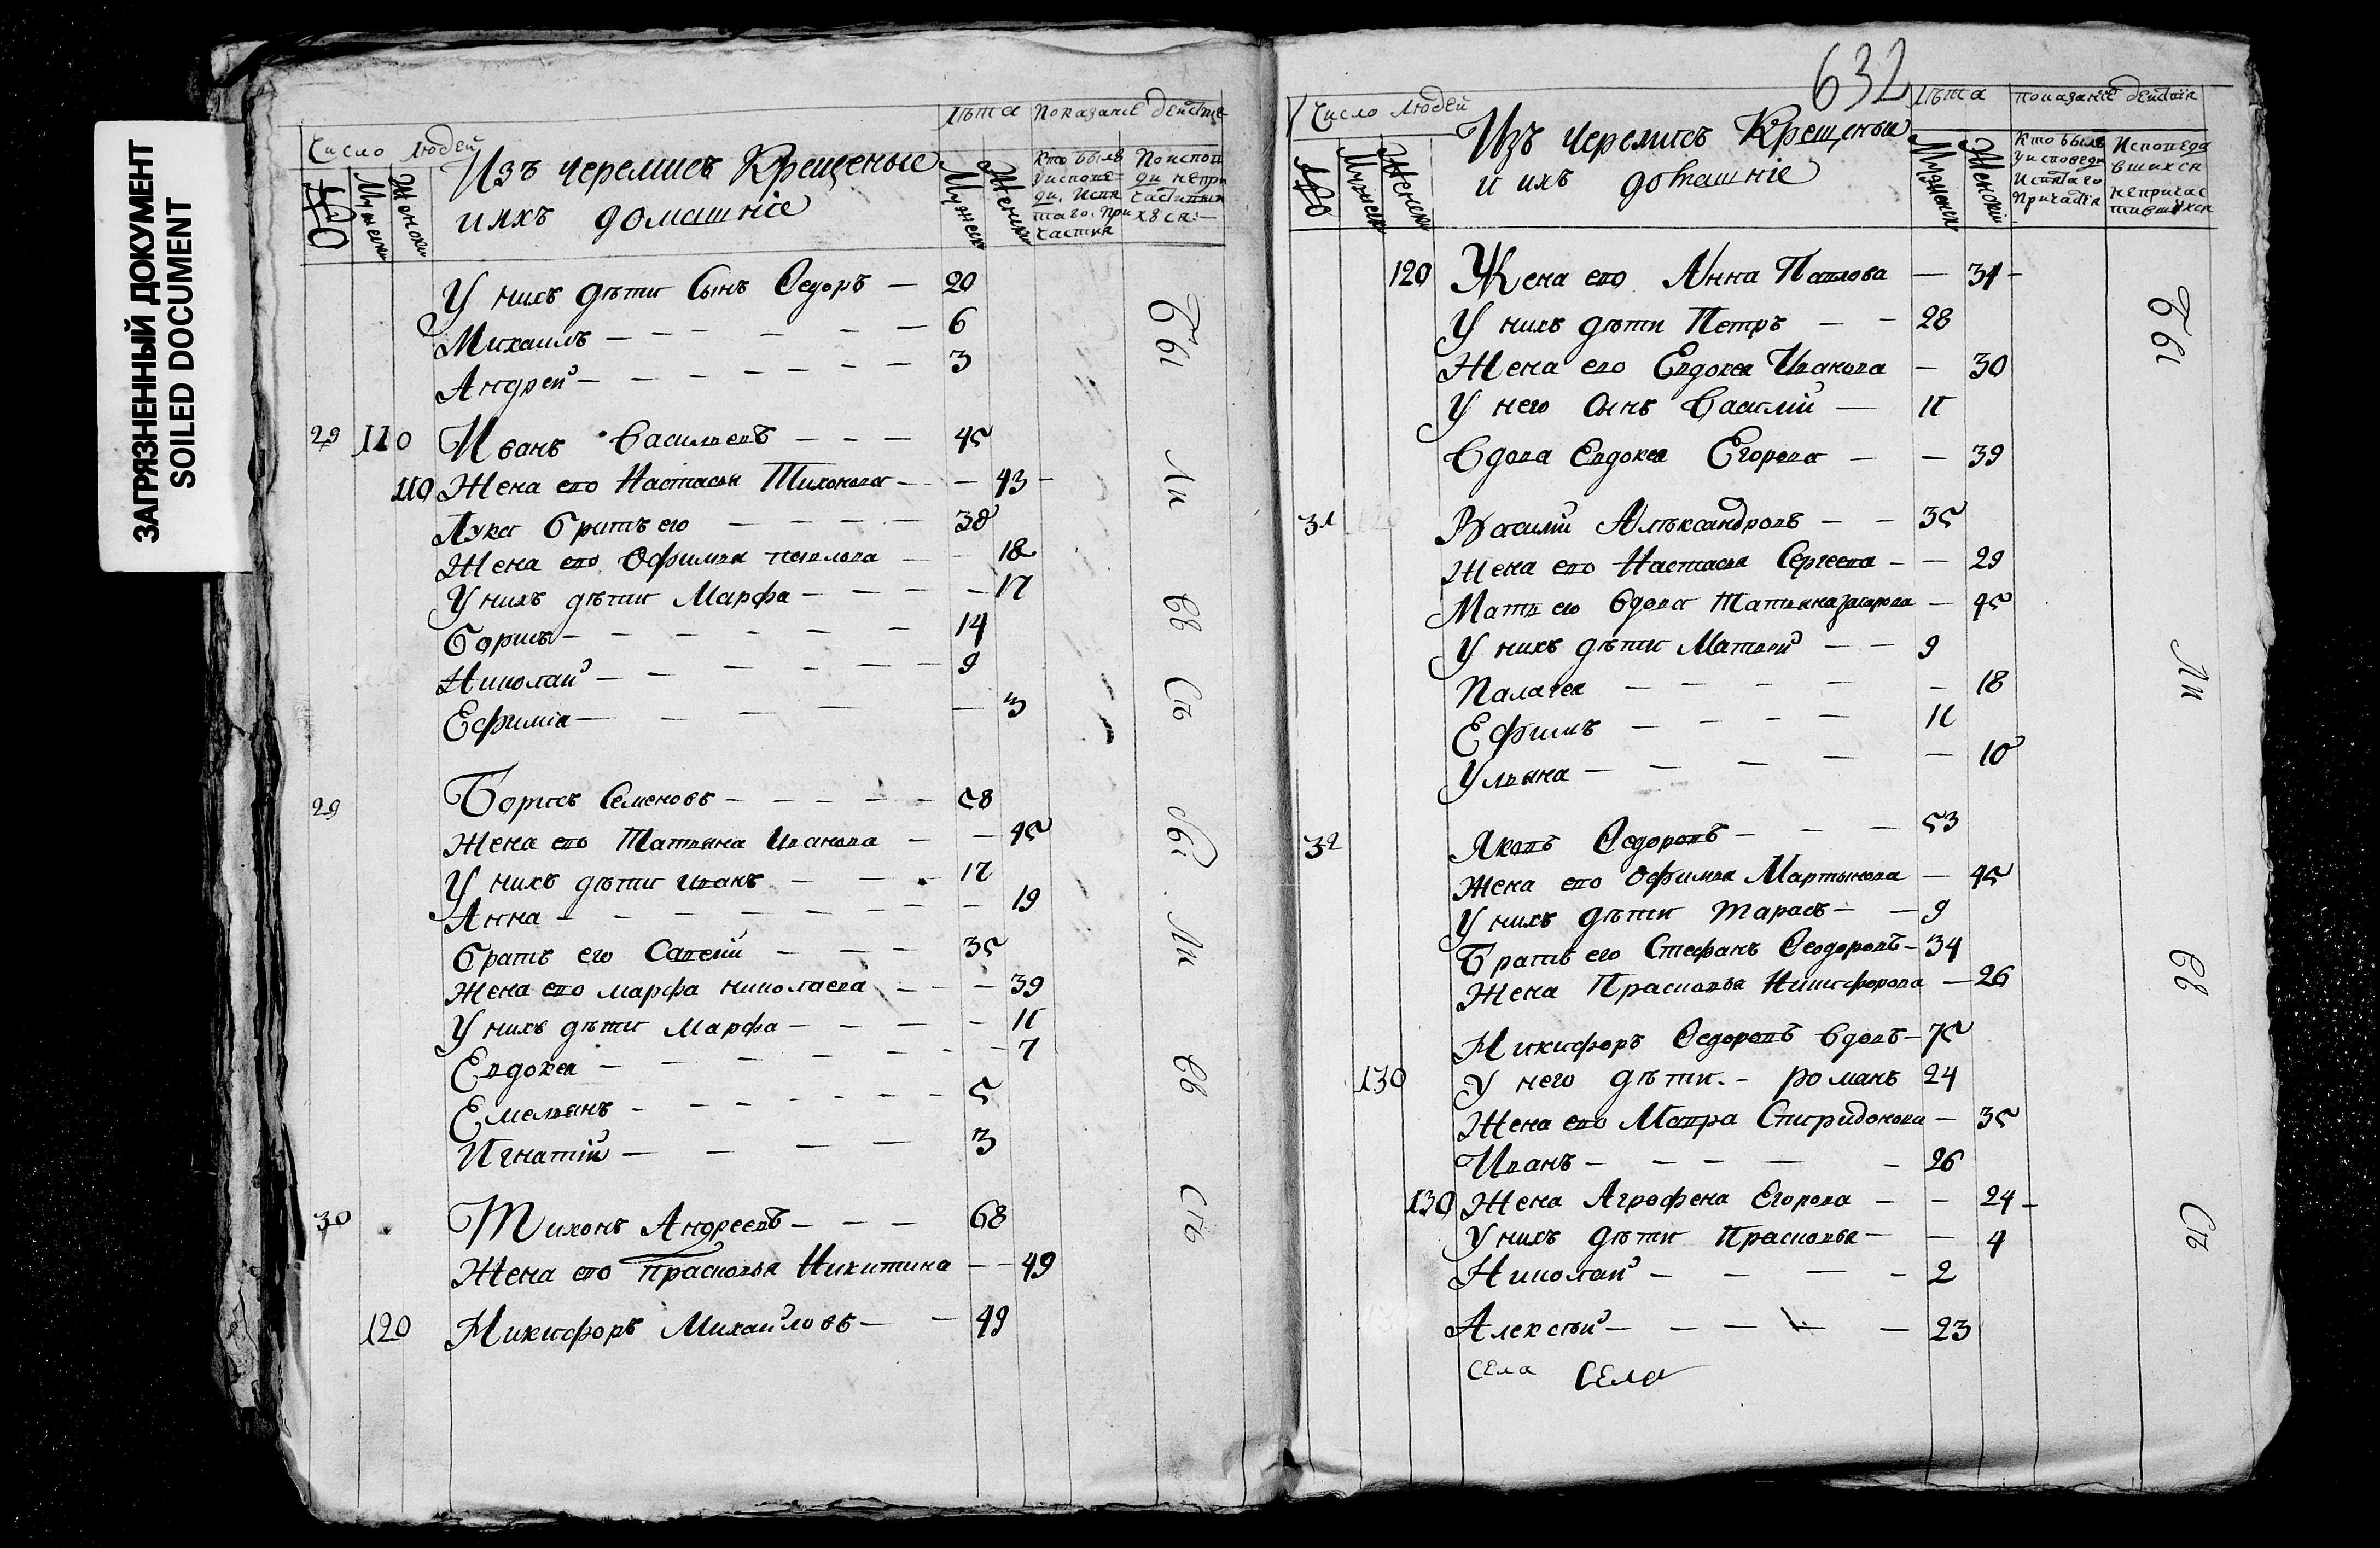 ЗАГРЯЗНЕННЫЙ ДОКУМЕНТ
SOILED DOCUMENT
Число людей
Изъ черемисъ Крещеные
и ихъ домашніе
Лѣта
Показаніе действ
№
Мужеск
Женски
Мужеск
Женски
Кто былъ
У испове-
ди. Исвя
таго. При
частия
По испов
ди непри
хся:-
У нихъ дѣти Сынъ Ѳедоръ — 20
Михаилъ — 6
Андрей — 3
29 110 Иванъ Васильевъ — 45
110 Жена его Настасья Тихонова — 43
Лука братъ его — 38
Жена его Офимья — 18
У нихъ дѣти Марфа — 17
Борисъ — 14
Николай — 9
Ефимiа — 3
29 Борисъ Семеновъ — 58
Жена его Татьяна Иванова — 45
У нихъ дѣти Иванъ — 17
Анна — 19
братъ его Савелій — 35
Жена его марфа николаева — 39
У нихъ дѣти Марфа — 11
Евдокея — 7
Емельянъ — 5
Игнатій — 3
30 Тихонъ Андреевъ — 68
Жена его Прасковья Никитина — 49
120 Никифоръ Михайловъ — 49
Бы
Ли
Вв
Съ
Ли
Вв
Съ
632
Число людей
Изъ черемисъ Крещеныи
и ихъ домашніе
Лѣта
показаніе действія
№
Мужеск
Женски
Мужеск
Женски
Кто былъ
У исповеди
Исвятаго
Причастія
Исповеда
вшихся
непричас
тившихся
120 Жена его Анна Павлова — 34
У нихъ дѣти Петръ — 28
Жена его Евдокея Иванова — 30
У него сынъ Василій — 11
Вдова Евдокея Егорова — 39
31 Василій Алѣксандровъ — 35
Жена его Настасья Сергеева — 29
Мать его вдова Татьяна Захарова — 45
У нихъ дѣти Матвей — 9
Палагея — 18
Ефимъ — 11
Ульяна — 10
32 Яковъ Ѳедоровъ — 53
Жена его Офимья Мартынова — 45
У нихъ дѣти Тарасъ — 9
Братъ его Стефанъ Ѳеодоровъ — 34
Жена Прасковья Никифорова — 26
Никифоръ Ѳедоровъ вдовъ — 75
130 У него дѣти. — романъ 24
Жена его Мавра Спиридонова — 35
Иванъ — 26
130 Жена Агрофена Егорова — 24
У нихъ дѣти Прасковья — 4
Николай — 2
Алексѣй — 23
села села
Бы
Ли
Вв
Съ